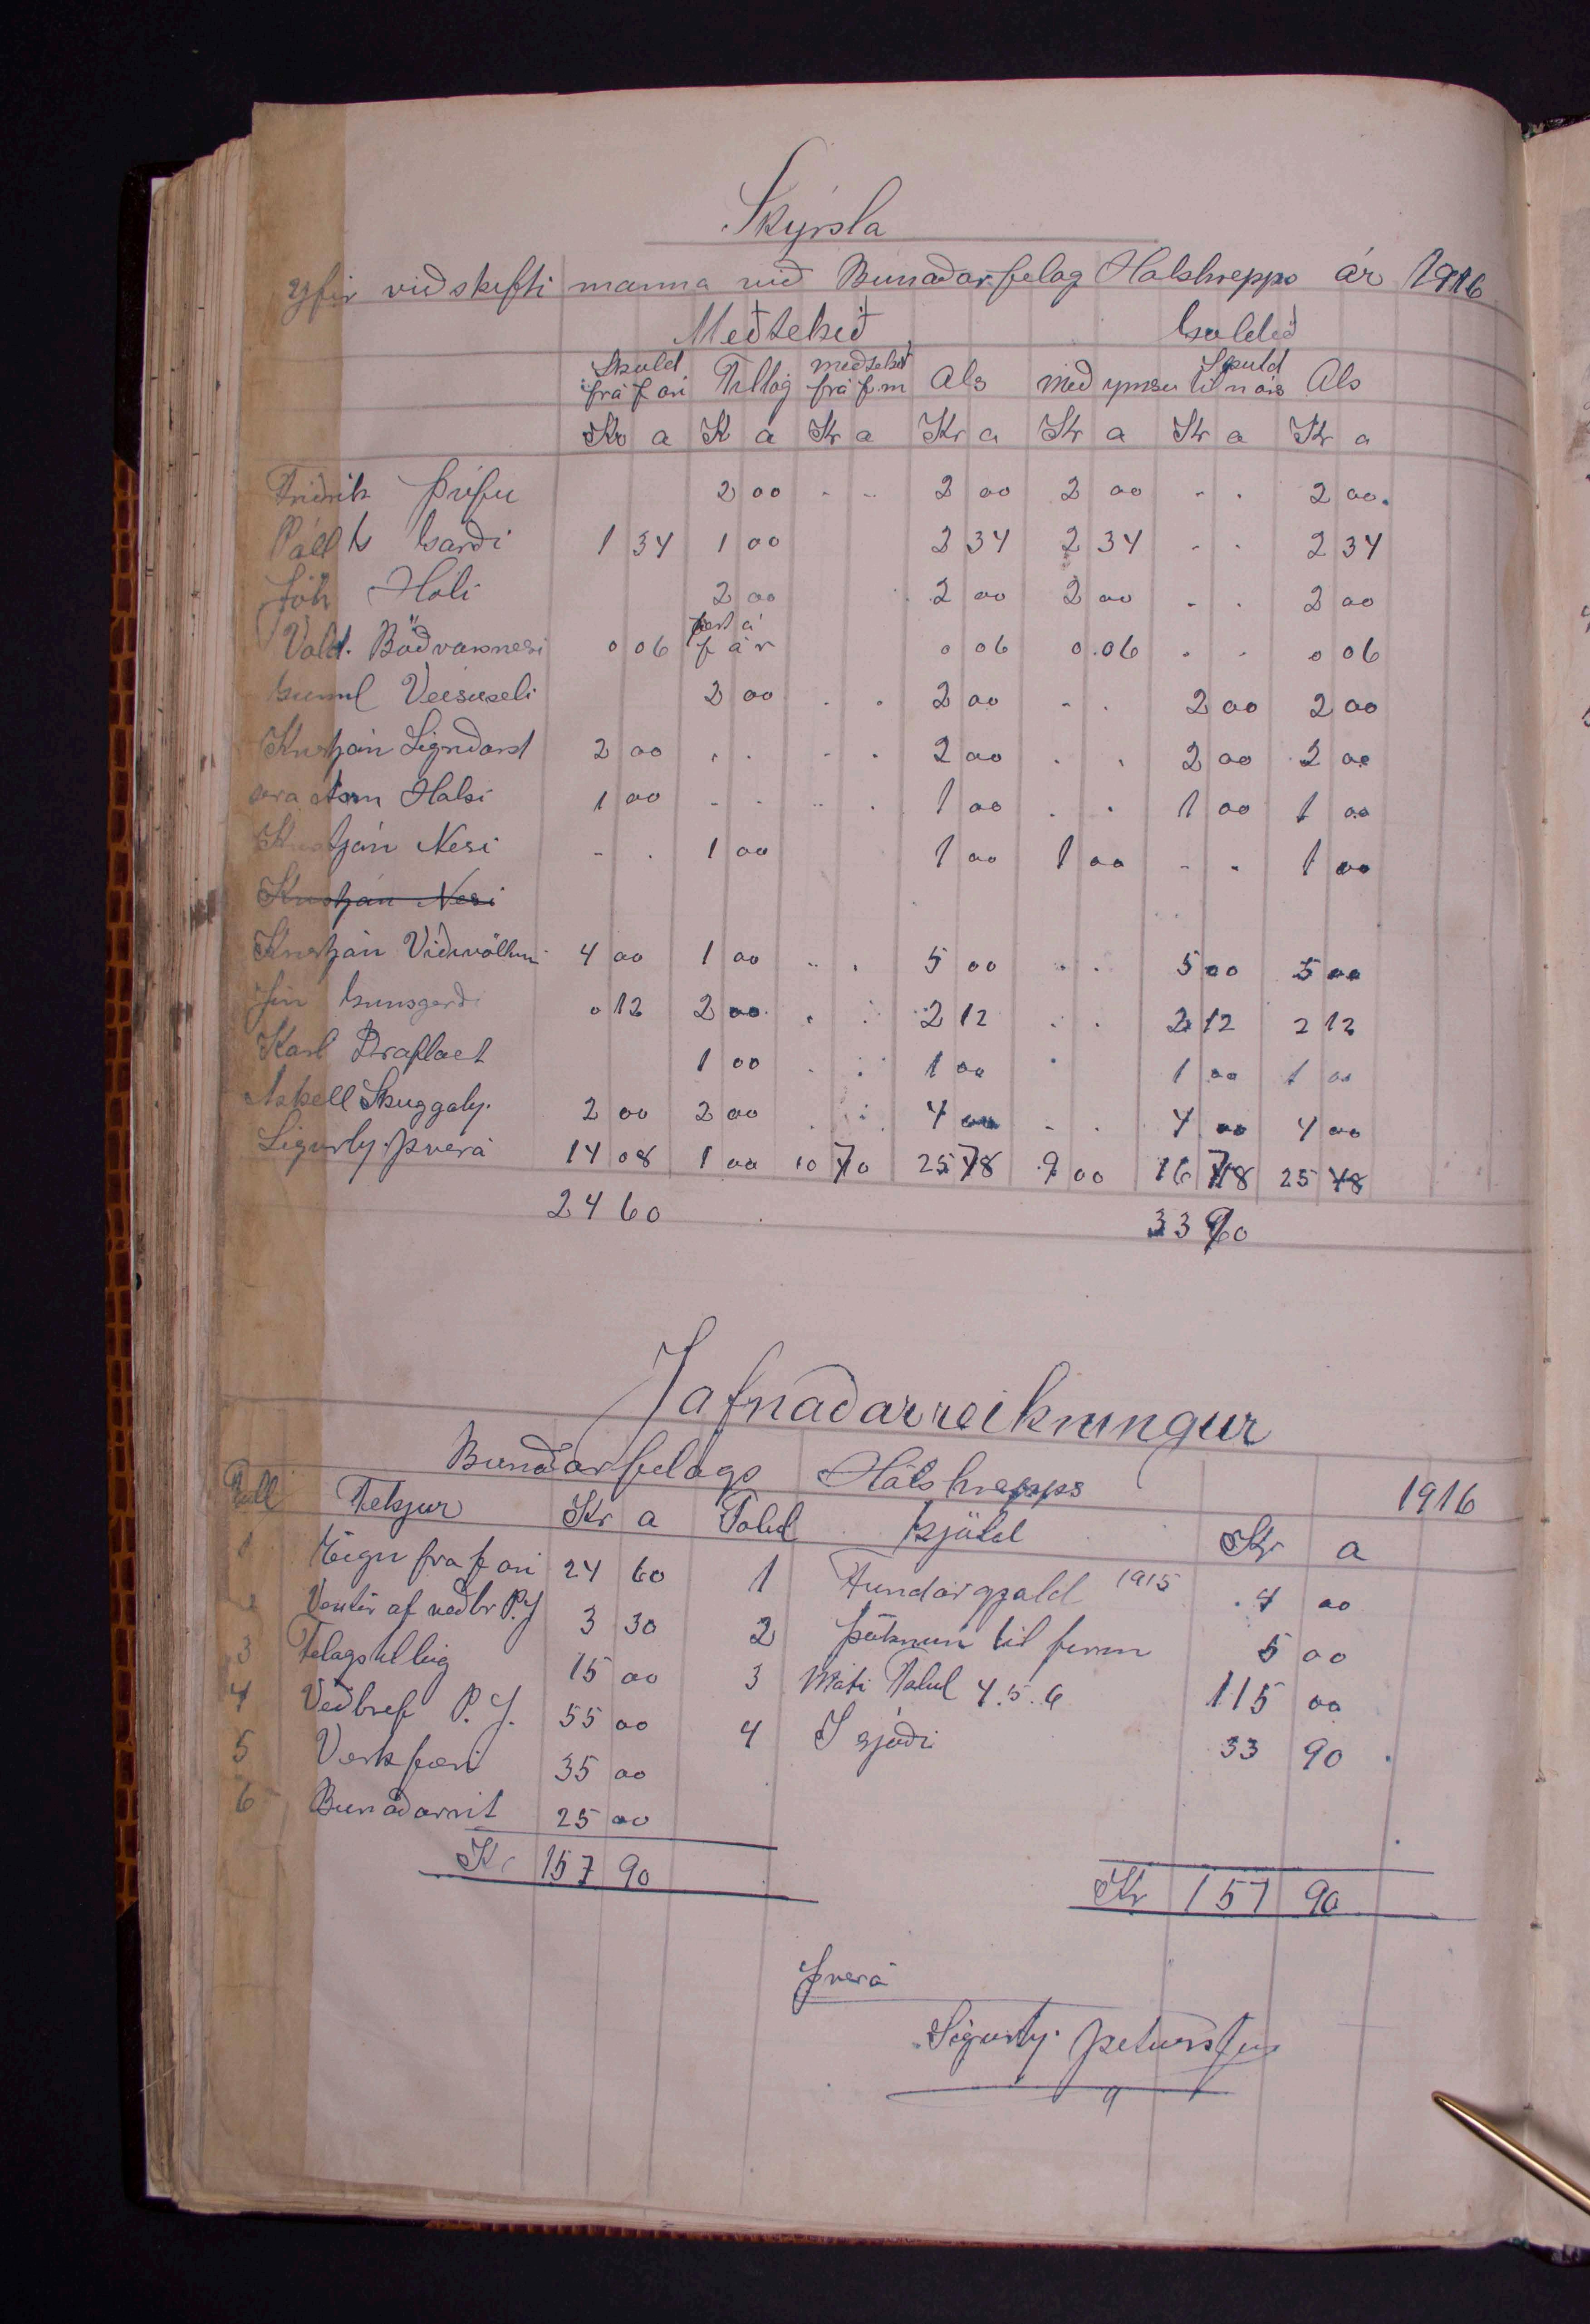 Skýrsla
Yfir viðskifti manna við Bunaðarfelag Halshrepps ár 1916
Meðtekið Goldið
Skuld frá f ári Tillög meðtekið frá f m Als með ymsu Skuld til n árs Als
Kr a K a Kr a Kr a Kr a Kr a Kr a
Friðrik Þúfu 2 00 - - 2 00 2 00 - - 2 00.
Páll G Garði 1 34 1 00 2 34 2 34 - - 2 34
Jóh Hóli 2 00 2 00 2 00 - - 2 00
Vald. Böðvarsnesi 0 06 f ár 0 06 0.06 - - 0 06
Gunnl Veisuseli 2 00 . . 2 00 - . 2 00 2 00
Kristján Sigriðarst 2 00 . . - . 2 00 . . 2 00 2 00
sera Asm Halsi 1 00 - - - . 1 00 . . 1 00 1 00
Kristján Nesi - . 1 00 1 00 1 00 - - 1 00
Kristján Nesi
Kristján Viðivöllum 4 00 1 00 - . 5 00 . . 5 00 5 00
Jón Gunsgerði 0 12 2 00 . . 2 12 . . 2 12 2 12
Karl Draflast 1 00 . . 1 00 . 1 00 1 00
Askell Skuggabj. 2 00 2 00 . . 4 00 - . 4 00 4 00
Sigurbj. Þverá 14 08 1 00 10 70 25 78 9 00 16 78 25 78
24 60 33 90
Jafnaðarreikningur
Bunaðarfelags Hálshrepps 1916
Töll Tekjur Kr a Tölul Gjöld Kr a
1 Eign fra f ári 24 60 1 Fundargjald 1915 4 00
2 Vextir af veðbr P.J 3 30 2 Þóknun til form 5 00
3 Felagstillög 15 00 3 Móti Tölul 4.5.6 115 00
4 Veðbref P. J. 55 00 4 I sjóði 33 90
5 Verkfæri 35 00
6 Bunaðarrit 25 00
Kr 157 90 Kr 157 90
Þverá
Sigurbj. Petursson